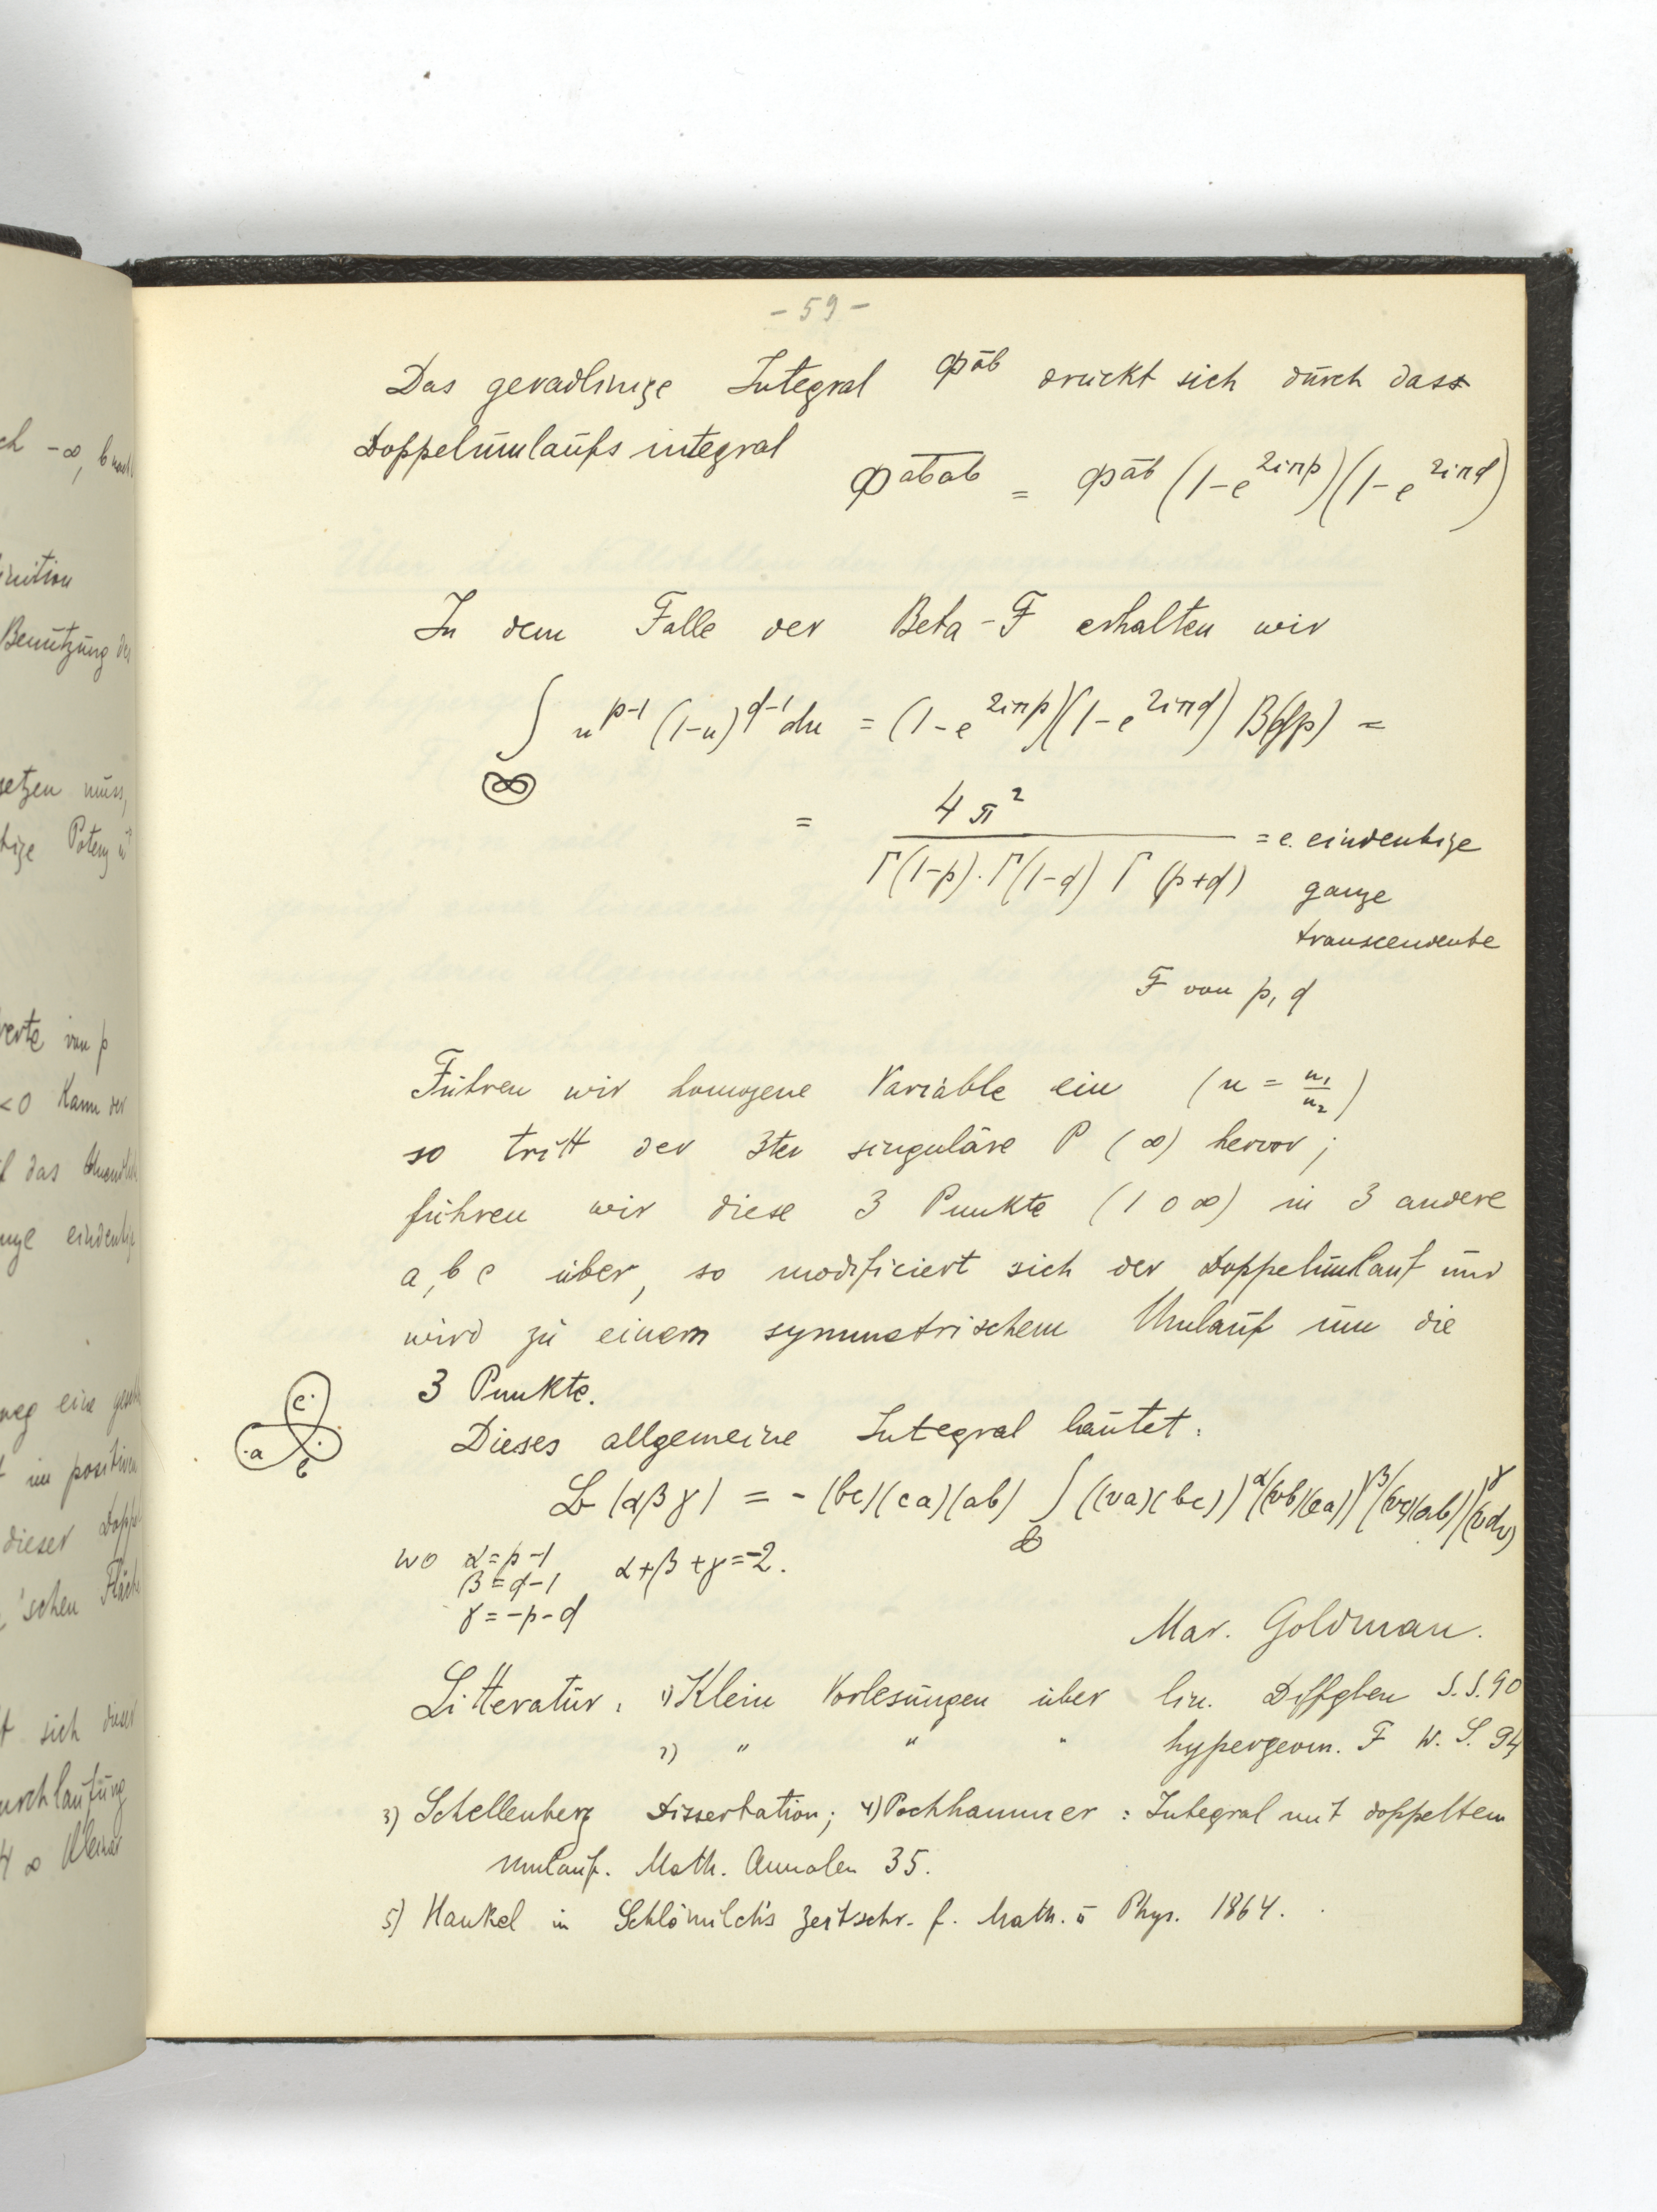 - 59 -
Das geradlinige Integral Φ^{āb} drückt sich durch dass
Doppelumlaufs integral
Φ^{\overline{abab}} = Φ^{āb} (1-e^{2iπp})(1-e^{2iπq})
In dem Falle der Beta-F erhalten wir
∫ u^{p-1} (1-u)^{q-1} du = (1-e^{2iπp})(1-e^{2iπq}) B(qp) =
= 4π² / Γ(1-p).Γ(1-q) Γ(p+q) = e. eindeutige
ganze
transcendente
F von p, q
Führen wir homogene Variable ein (u = u₁/u₂)
so tritt der 3te singuläre P (∞) hervor;
führen wir diese 3 Punkte (1 0 ∞) in 3 andere
a, b c über, so modificiert sich der Doppelumlauf und
wird zu einem symmetrischem Umlauf um die
3 Punkte.
c a b
Dieses allgemeine Integral lautet:
(αβγ) = - (bc)(ca)(ab) ∫ ((va)(bc))^α ((vb)(ca))^β ((vc)(ab))^γ (vdv)
wo α = p-1 α+β+γ=-2.
β = q-1
γ = -p-q
Mar. Goldman.
Litteratur: 1) Klein Vorlesungen über lin. Diffglen S.S. 90
2) " " " hypergeom. F W.S. 94
3) Schellenberg Dissertation; 4) Pochhammer: Integral mit doppeltem
Umlauf. Math. Annalen 35.
5) Hankel in Schlömilch's Zeitschr. f. Math. ū Phys. 1864.